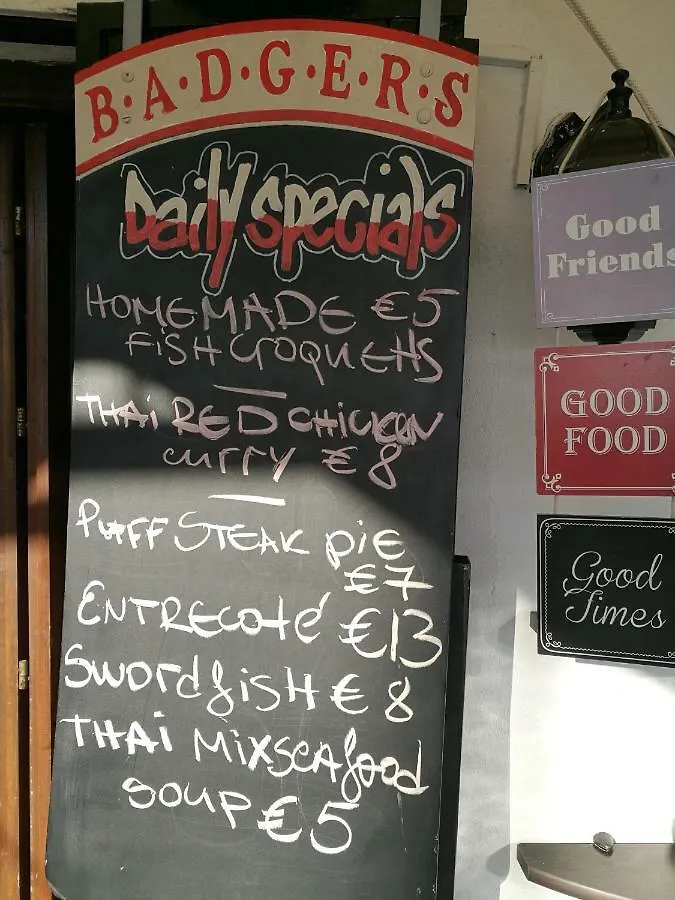 B·A·D·G·E·R·S
Daily specials
HOMEMADE €5
FISH CROQUETTS
THAI RED CHICKEN
curry €8
PUFF STEAK PIE
€7
ENTRECOTÉ €13
SWORDFISH €8
THAI MIXSEAfood
SOUP €5
Good
Friends
GOOD
FOOD
Good
Times